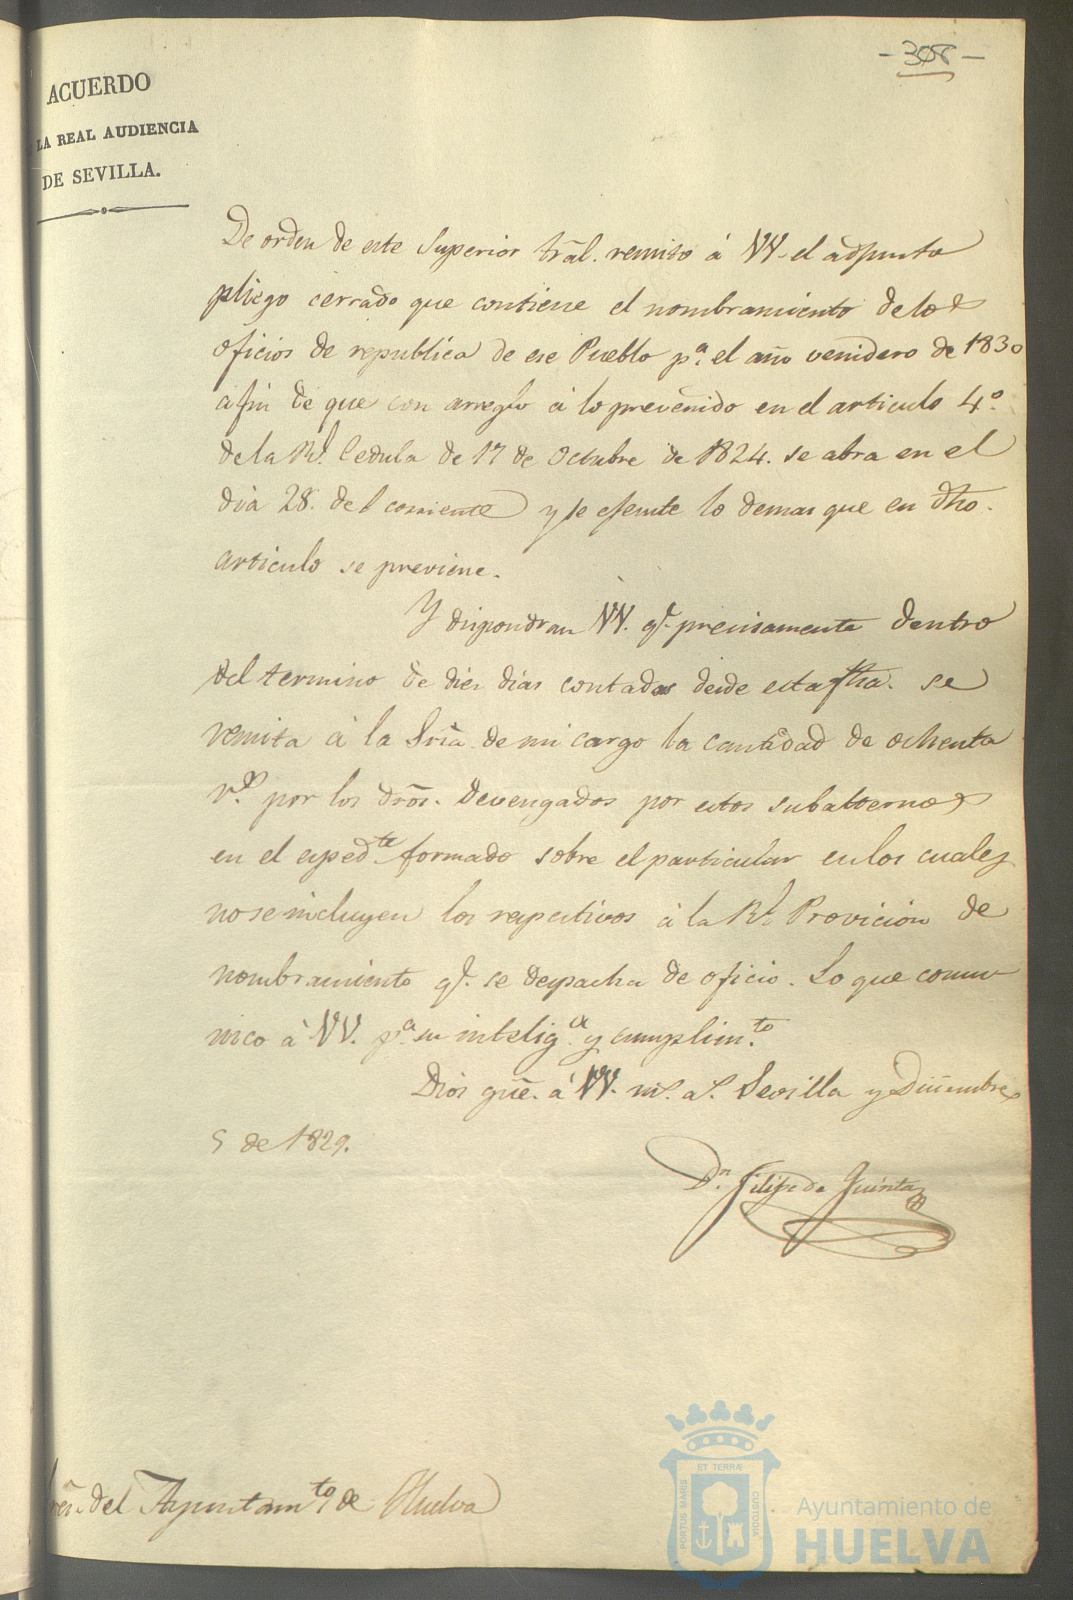 - 308 -
ACUERDO
LA REAL AUDIENCIA
DE SEVILLA.
De orden de este Superior trãl. remito á VV. el adjunto
pliego cerrado que contiene el nombramiento de los
oficios de republica de ese Pueblo p.ª el año venidero de 1830
a fin de que con arreglo á lo prevenido en el articulo 4.º
de la Rl. Cedula de 17 de Octubre de 1824. se abra en el
dia 28. del corriente y se efectue lo demas que en dho.
articulo se previene.
Y dispondran VV. q.e precisamente dentro
del termino de diez dias contados desde esta fha. se
remita á la Sria. de mi cargo la cantidad de ochenta
r.s por los drõs. devengados por estos subalternos
en el esped.te formado sobre el particular en los cuales
no se incluyen los respectivos á la Rl. Provicion de
nombramiento q.e se despacha de oficio. Lo que comu-
nico á VV. p.ª su intelig.ª y cumplim.to
Dios gũe. á VV. m.s a.s Sevilla y Diciembre
5 de 1829.
D.n Filipe de Quinta
res. del Ayuntam.to de Huelva
PORTUS MARIS
ET TERRÆ
CUSTODIA
Ayuntamiento de
HUELVA